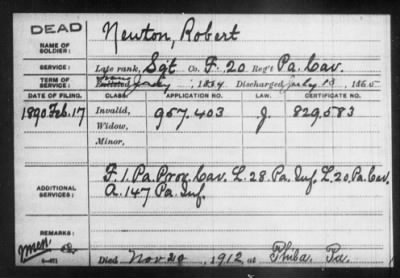 DEAD
Newton, Robert
NAME OF SOLDIER:
SERVICE: Late rank, Sgt Co. F. 20 Reg't Pa. Cav.
TERM OF SERVICE: Enlisted July, 1864 Discharged July 13, 1865
DATE OF FILING. CLASS. APPLICATION NO. LAW. CERTIFICATE NO.
1890 Feb. 17 Invalid, 957.403 J. 829,583
Widow,
Minor,
ADDITIONAL SERVICES: F. 1. Pa. Prov. Cav. L. 28. Pa. Inf. L. 20 Pa. Cav.
A. 147 Pa. Inf.
REMARKS:
Died Nov 20, 1912, at Phila. Pa.